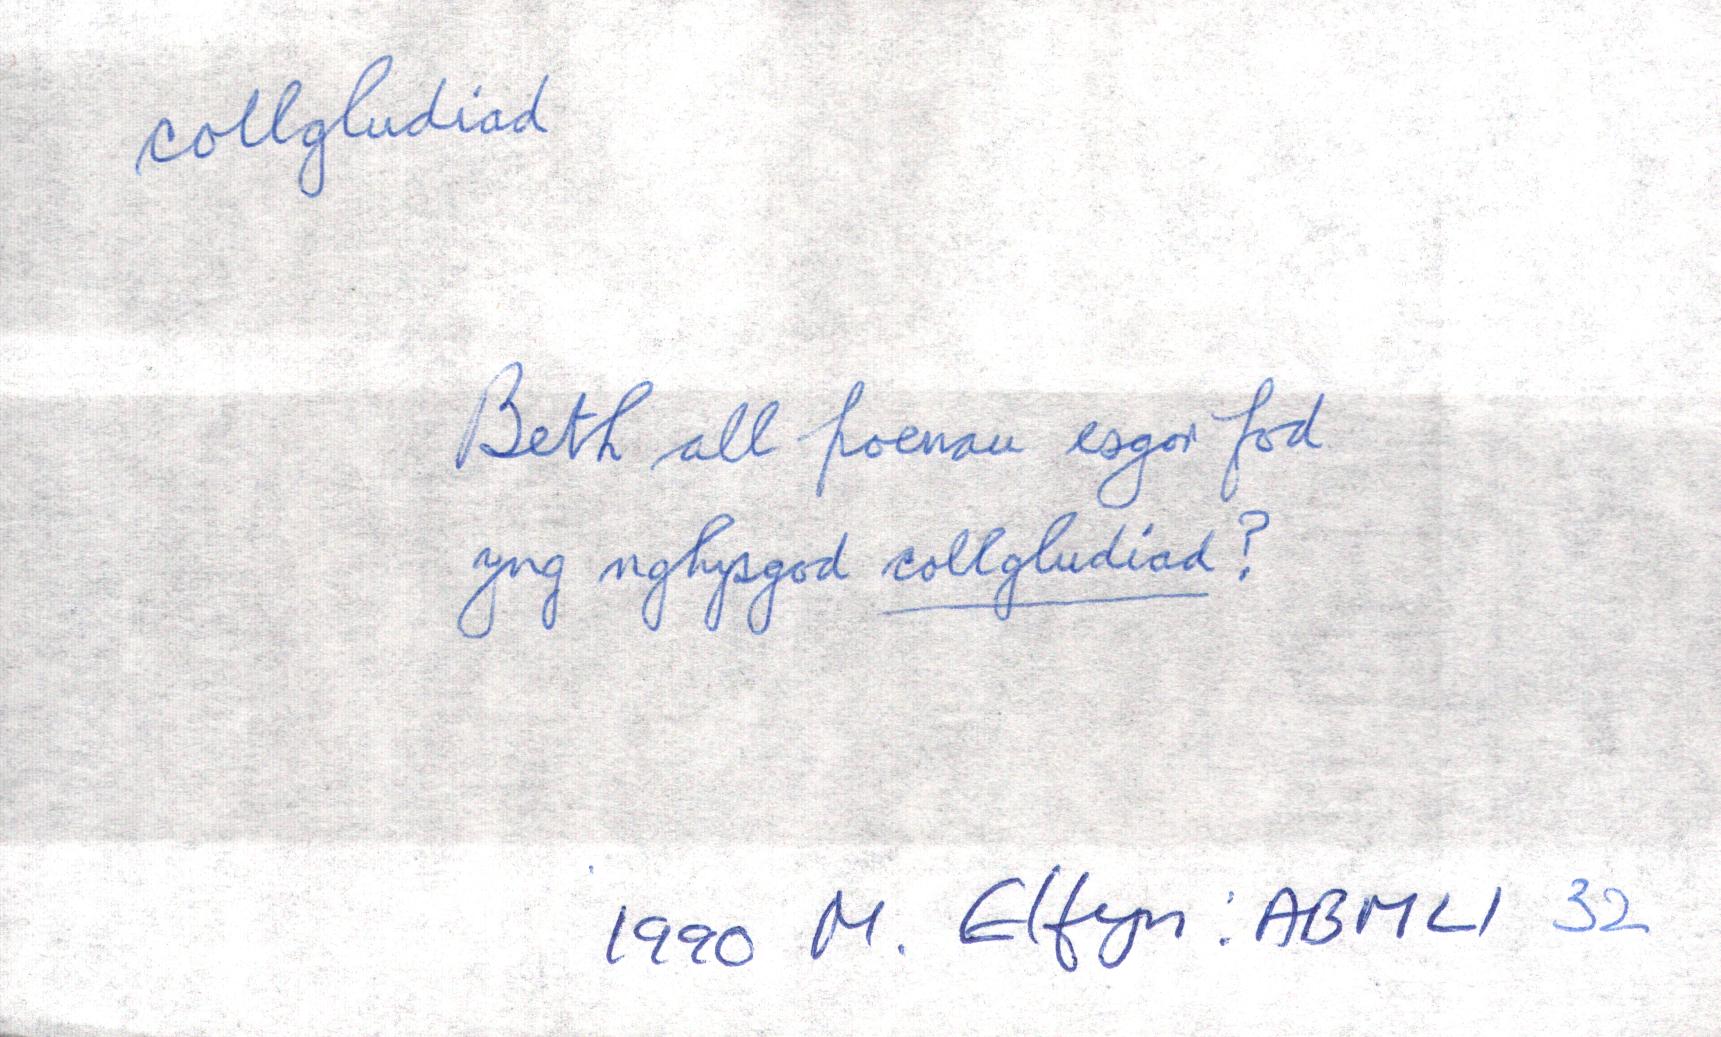 collgludiad
Beth all poenau esgor fod
yng nghysgod collgludiad?
1990 M. Elfyn: ABMLl 32